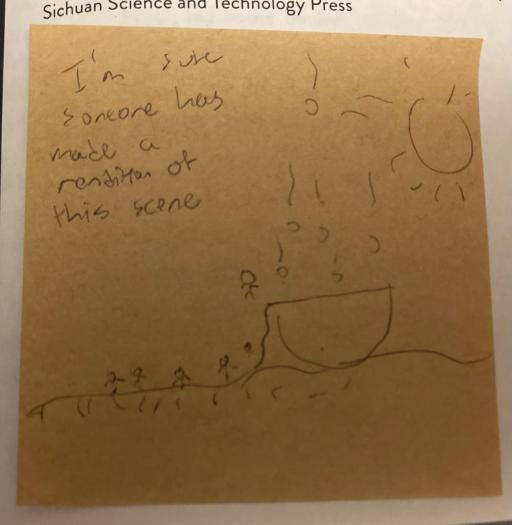 Sichuan Science and Technology Press
I'm sure
someone has
made a
rendition of
this scene